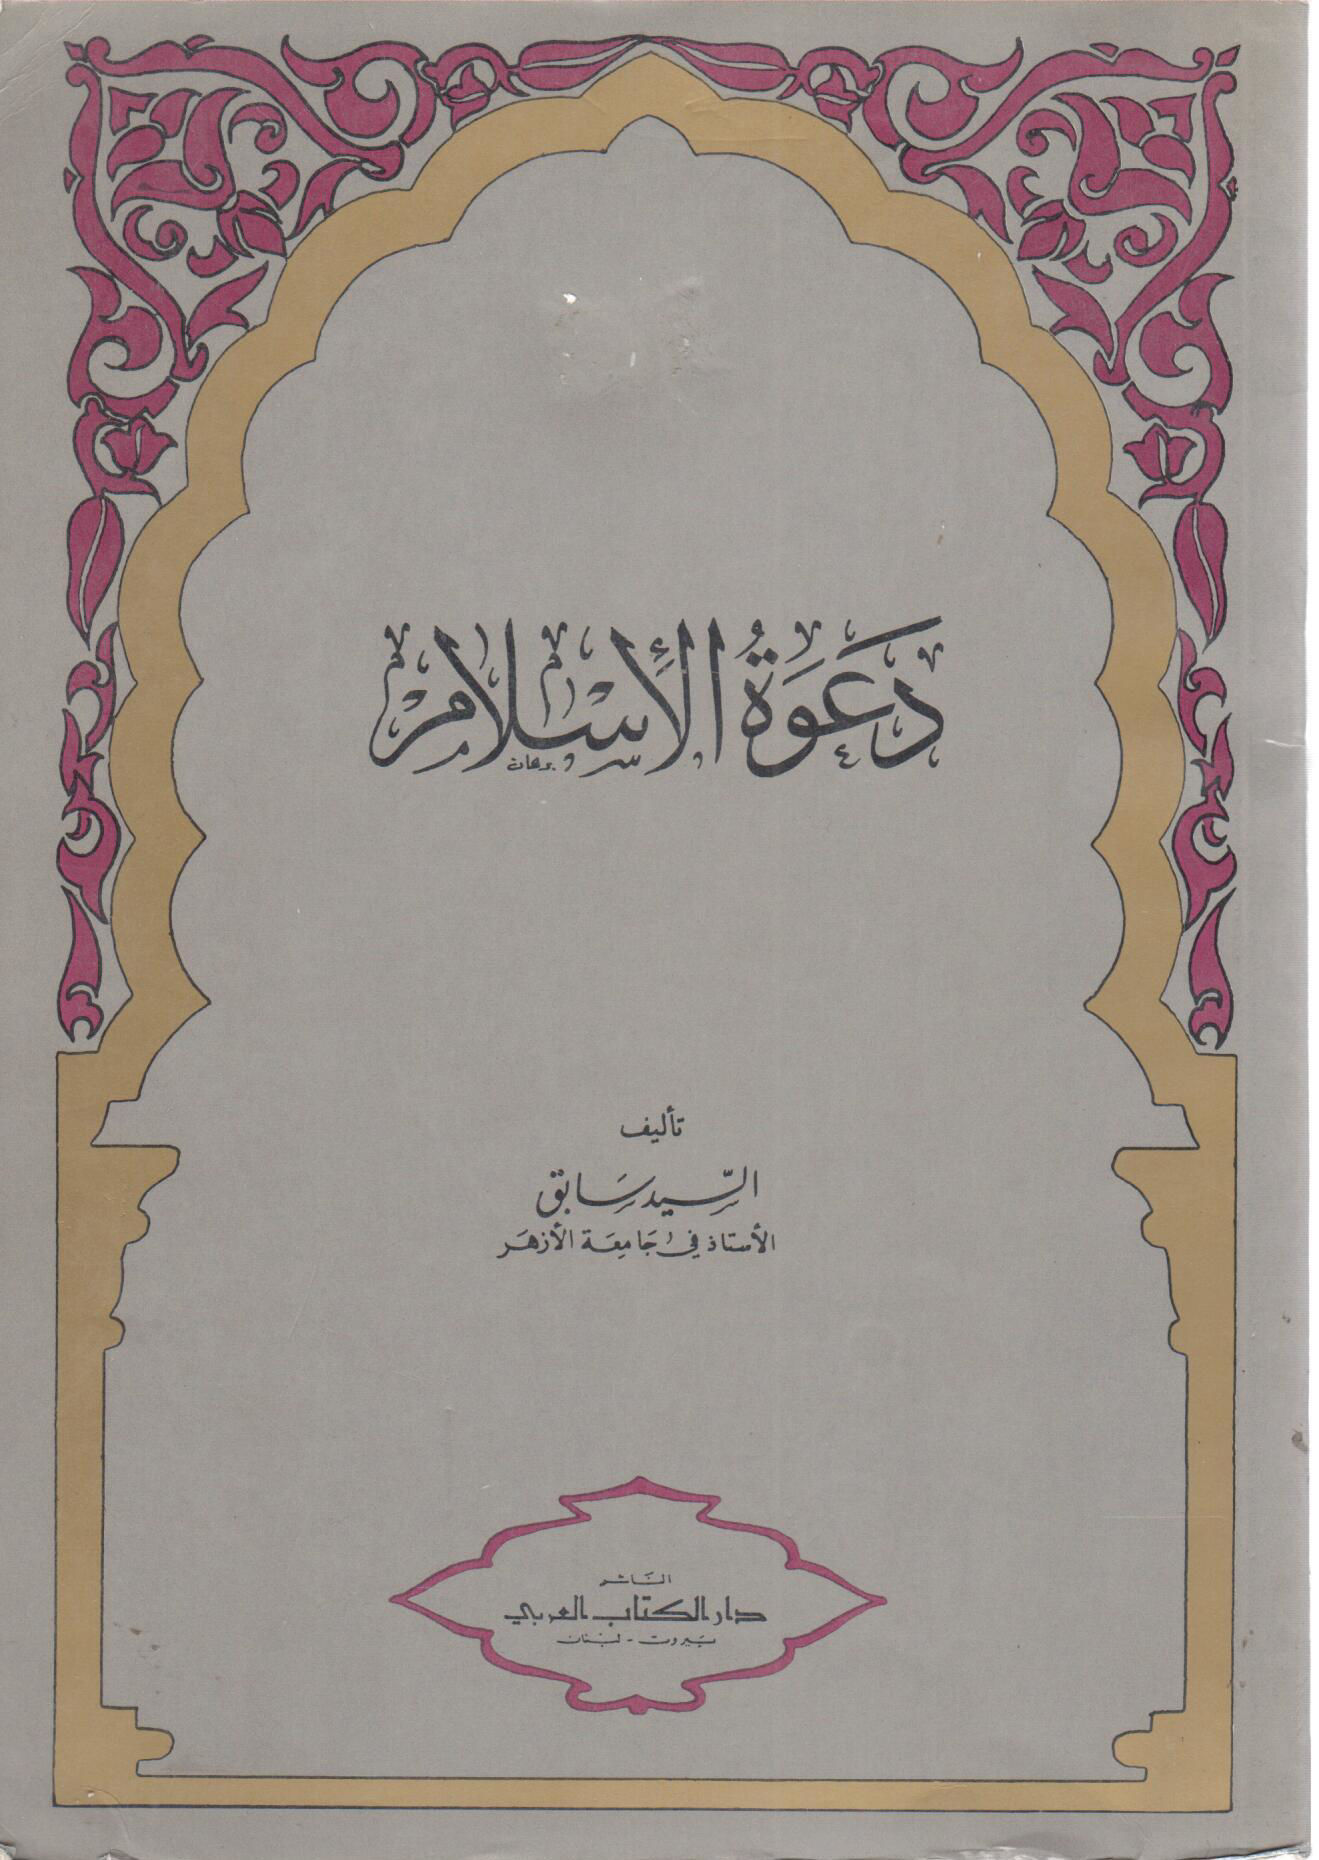 دَعَوَةُ الإِسْلَام
برهان
تأليف
السّيد سَابق
الأستاذ في جَامِعَة الأزهَر
النَاشر
دار الكتاب العربي
بَيروت - لبْنان